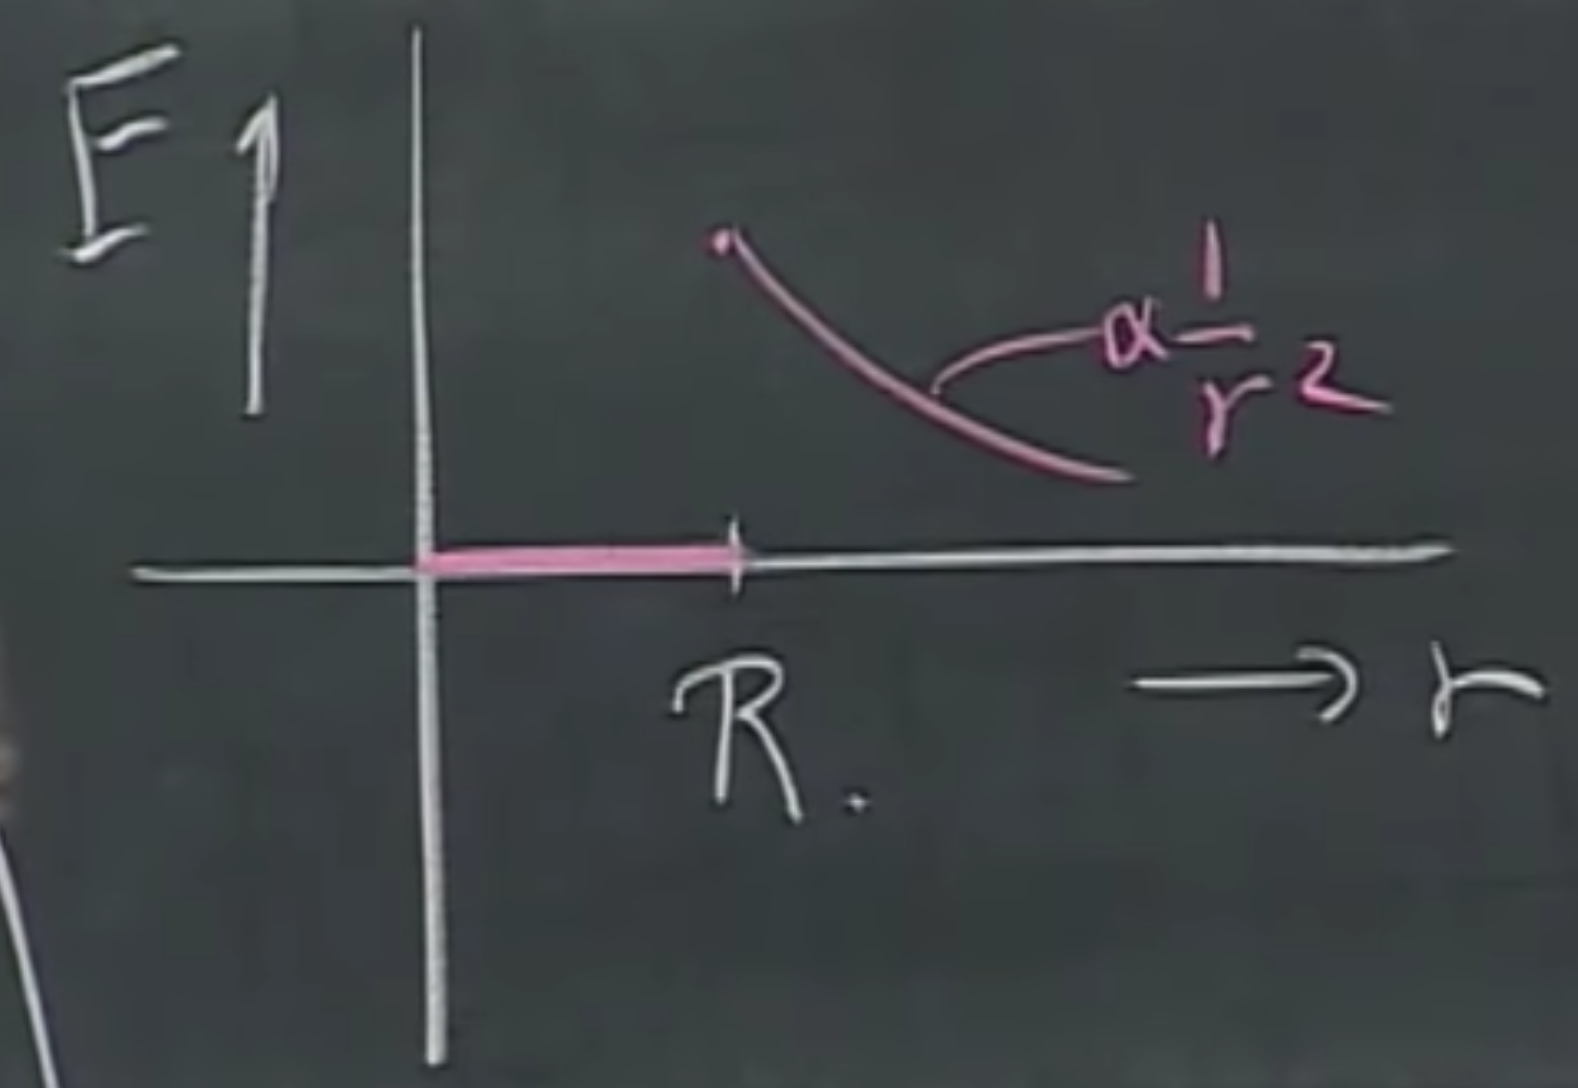 E ↑
∝ 1/r²
R.
→ r